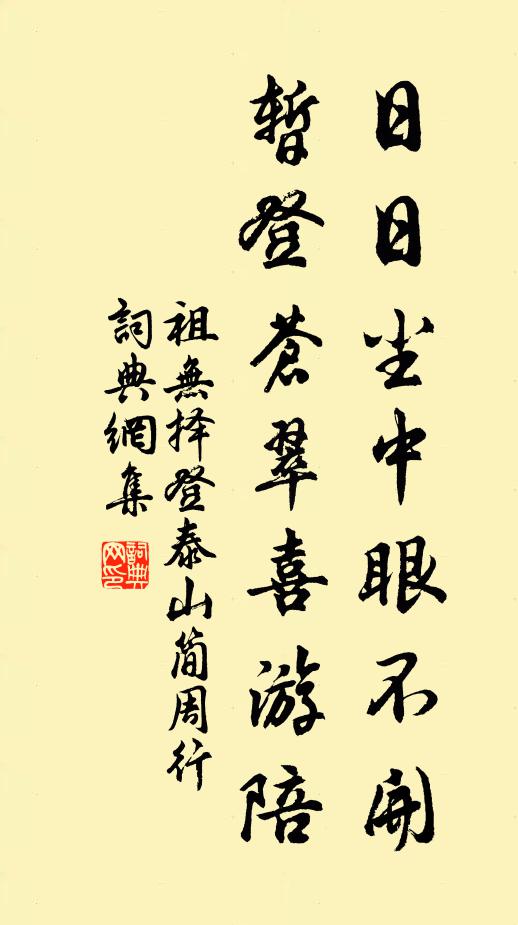 日日尘中眼不開
暫登蒼翠喜游陪
祖無择登泰山简周行
詞典網集
詞典網印